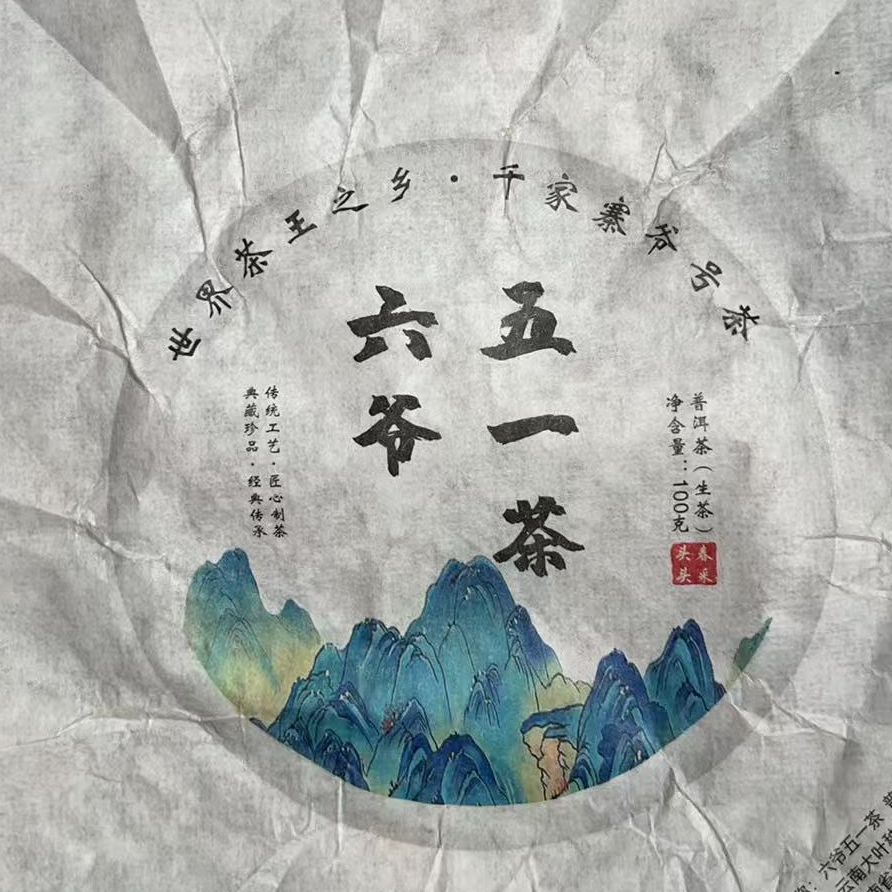 世界茶王之乡·千家寨爷号茶
六爷
五一茶
传统工艺·匠心制茶
典藏珍品·经典传承
普洱茶（生茶）
净含量：100克
春采
头头
：六爷五一茶 普
云南大叶种